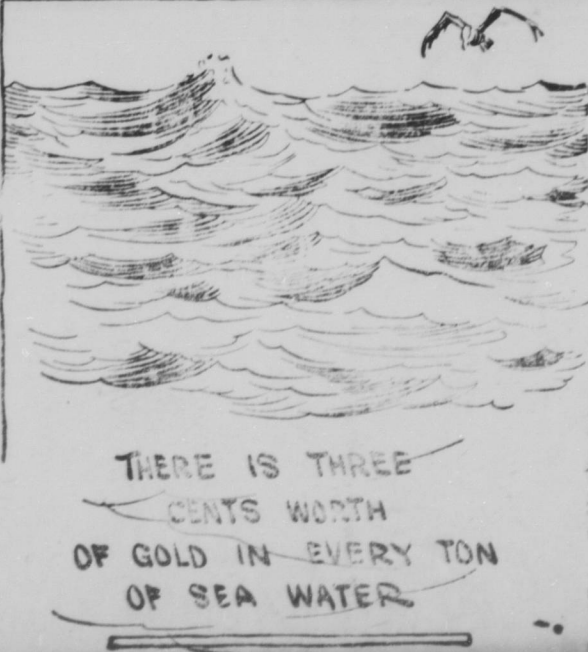 THERE IS THREE
CENTS WORTH
OF GOLD IN EVERY TON
OF SEA WATER